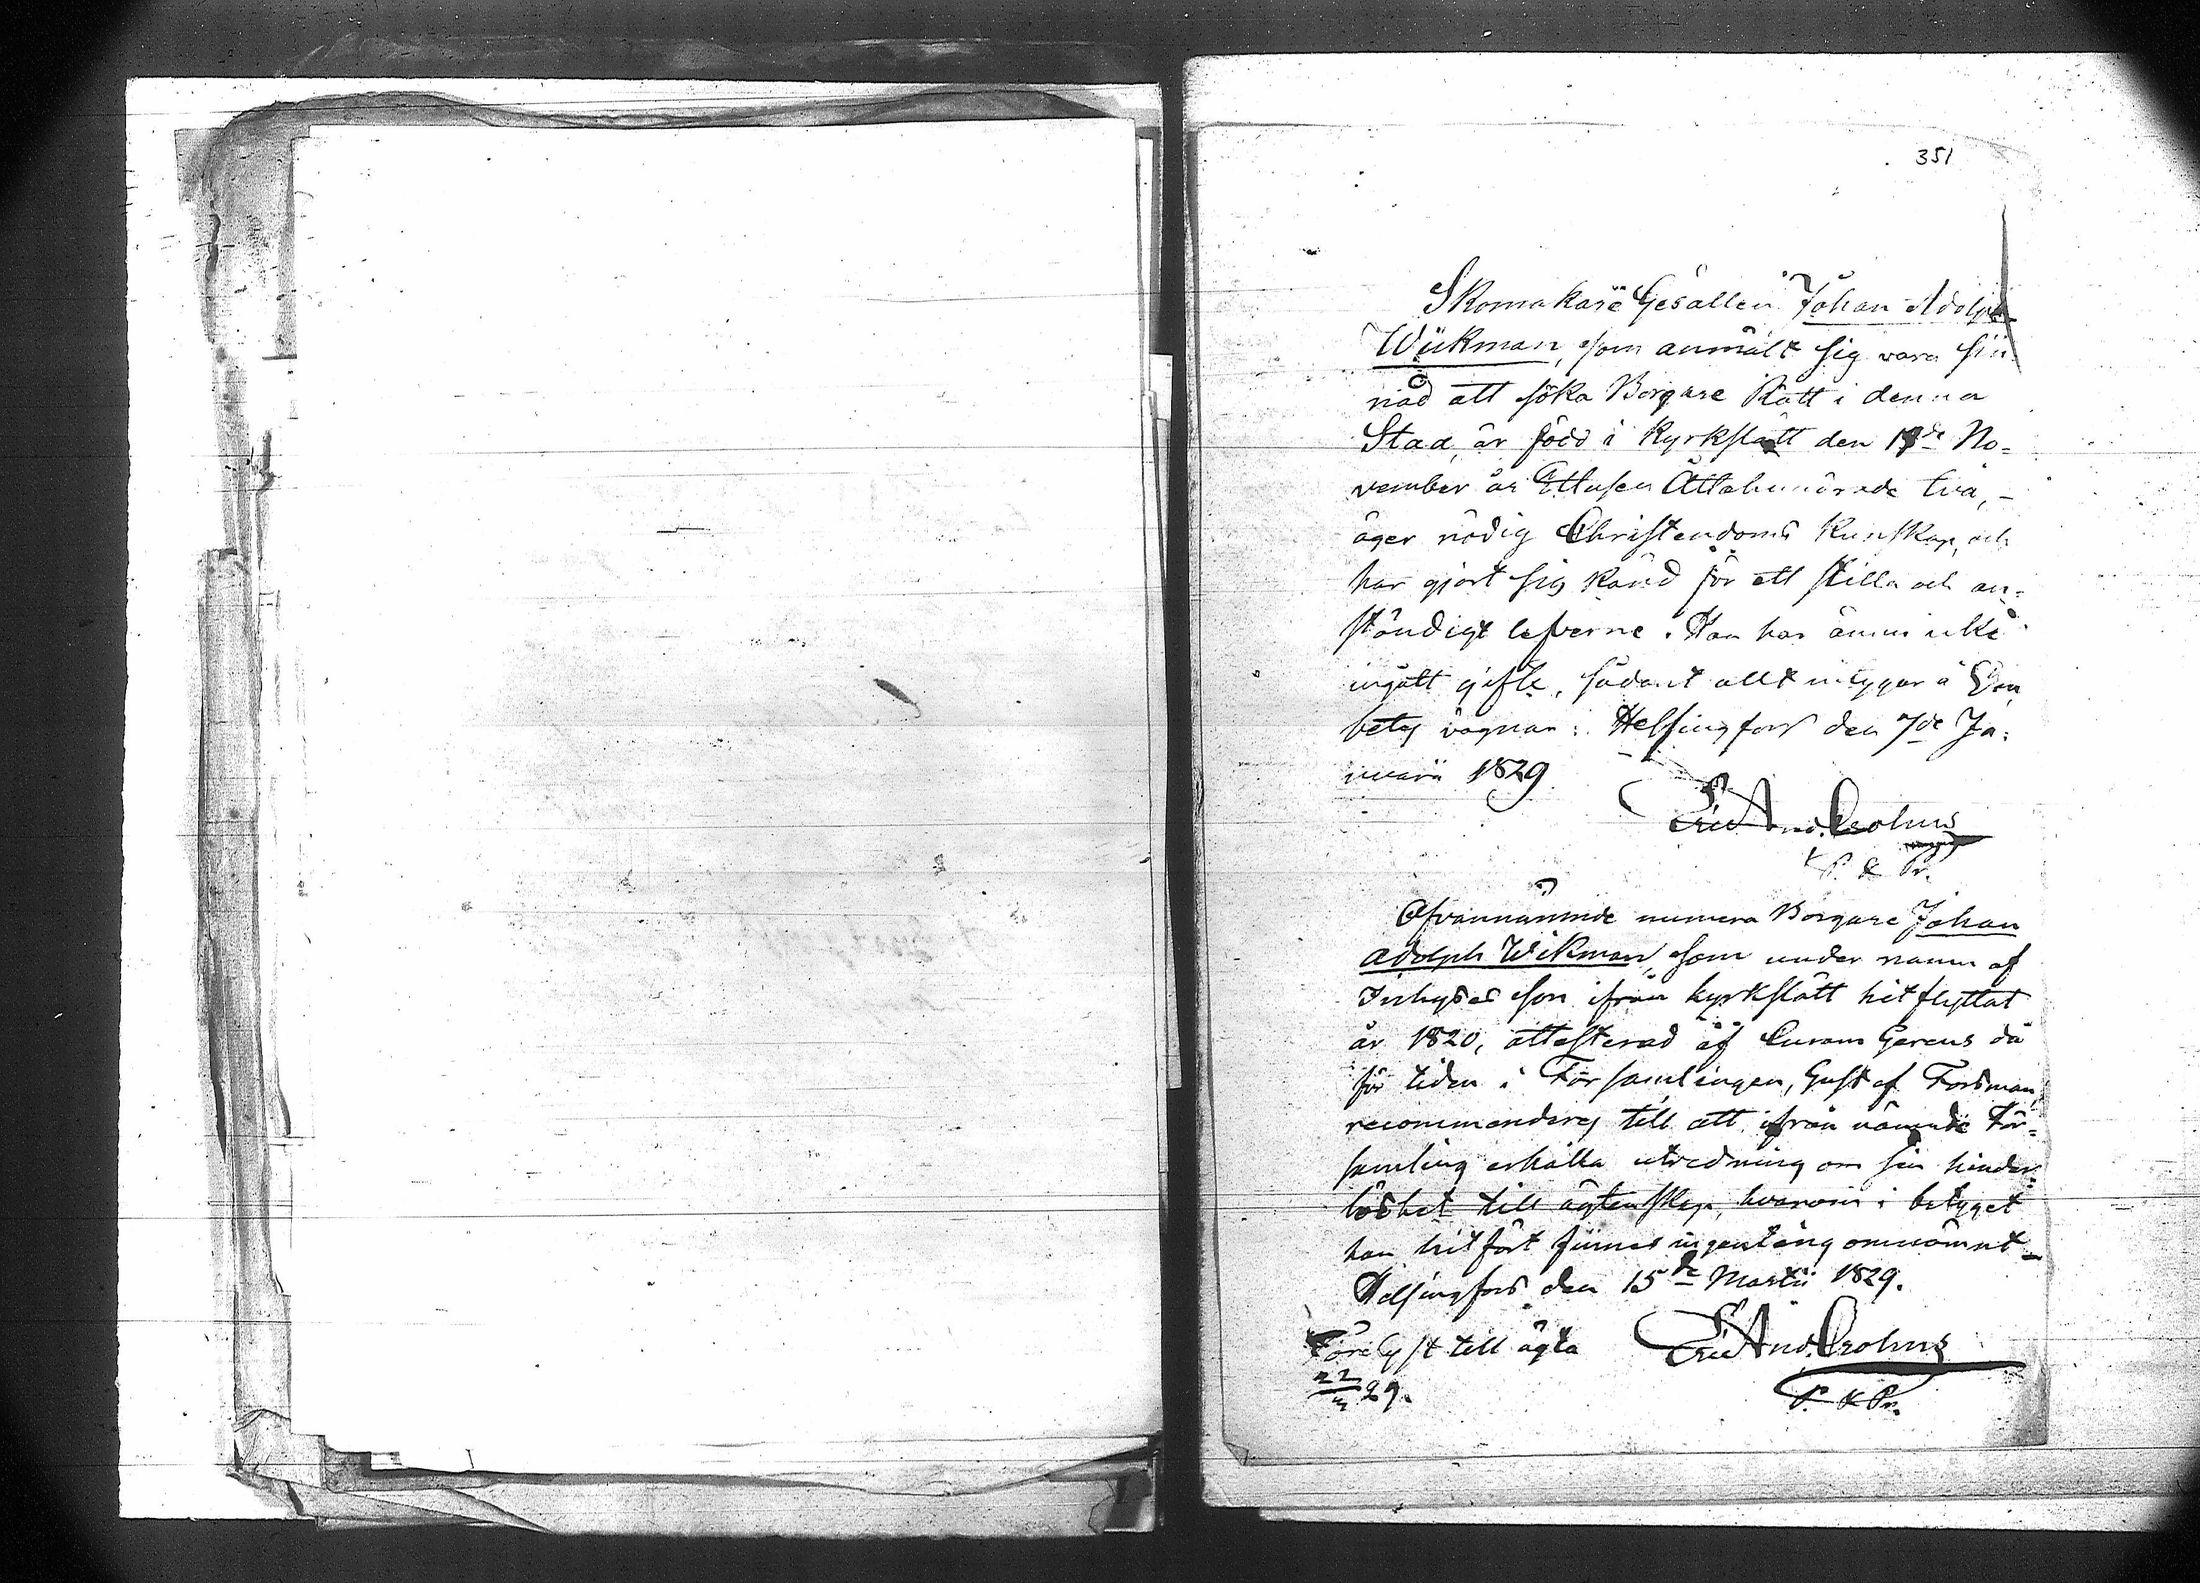 351
Skomakare Gesällen Johan Adolph
Wiikman, som anmält sig vara sin-
nad att söka Borgare Rätt i denna
Stad, är född i Kyrkslätt den 1 de No=
vember år Ettusen Åttahundrade två, –
äger nödig Christendoms Kunskap, och
har gjort sig känd för ett stilla och an=
ständigt lefverne. Han har ännu icke
ingått gifte, sådant allt intygar å Em
betes vägnar: Helsingfors den 7de Ja=
nuarii 1829
Eric And. Crohns
P. & Pr.
Ofvannämnde numera Borgare Johan
Adolph Wikman, som under namn af
Inhyses Son ifrån Kyrkslätt hit flyttat
år 1820, attesterad af Curam Gerens då
för tiden i Församlingen, Gustaf Forsman,
recommenderas till att ifrån nämnde För=
samling erhålla utredning om sin hinder=
löshet till ägtenskap, hvarom i betyget
han hit fört finnes ingenting omnämnt –
Helsingfors den 15de Martii 1829.
Förelyst till ägta
22/3 29.
Eric And. Crohns
P. & Pr.